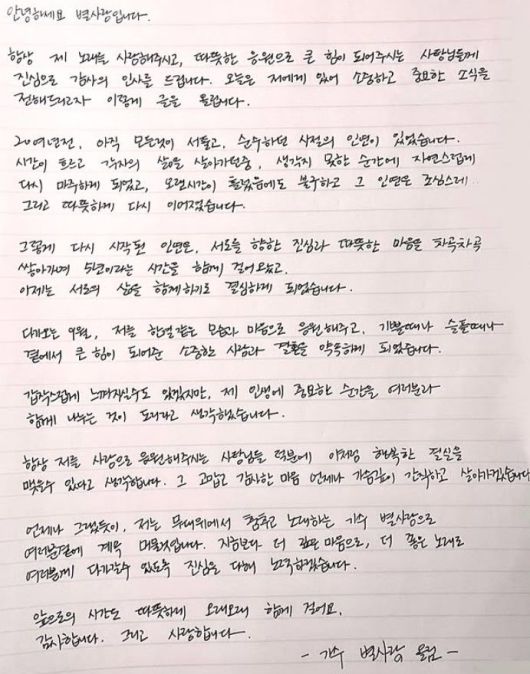 안녕하세요 별사랑입니다.
항상 제 노래를 사랑해주시고, 따뜻한 응원으로 큰 힘이 되어주시는 사랑님들께
진심으로 감사의 인사를 드립니다. 오늘은 저에게 있어 소중하고 중요한 소식을
전해드리고자 이렇게 글을 올립니다.
20여년전, 아직 모든것이 서툴고, 순수하던 시절의 인연이 있었습니다.
시간이 흐르고 각자의 삶을 살아가던중, 생각지 못한 순간에 자연스럽게
다시 마주하게 되었고, 오랜시간이 흘렀음에도 불구하고 그 인연은 조심스레
그리고 따뜻하게 다시 이어졌습니다.
그렇게 다시 시작된 인연은, 서로를 향한 진심과 따뜻한 마음을 차곡차곡
쌓아가며 5년이라는 시간을 함께 걸어왔고,
이제는 서로의 삶을 함께하기로 결심하게 되었습니다.
다가오는 9월, 저를 한결같은 모습과 마음으로 응원해주고, 기쁠때나 슬플때나
곁에서 큰 힘이 되어준 소중한 사람과 결혼을 약속하게 되었습니다.
갑작스럽게 느껴지실수도 있겠지만, 제 인생에 중요한 순간을 여러분과
함께 나누는 것이 도리라고 생각했습니다.
항상 저를 사랑으로 응원해주시는 사랑님들 덕분에 이처럼 행복한 결실을
맺을수 있다고 생각합니다. 그 고맙고 감사한 마음 언제나 가슴깊이 간직하고 살아가겠습니다
언제나 그랬듯이, 저는 무대위에서 춤추고 노래하는 가수 별사랑으로
여러분곁에 계속 머물것입니다. 지금보다 더 깊은 마음으로, 더 좋은 노래로
여러분께 다가갈수 있도록 진심을 다해 노력하겠습니다.
앞으로의 시간도 따뜻하게 오래오래 함께 걸어요.
감사합니다. 그리고 사랑합니다.
- 가수 별사랑 올림 -